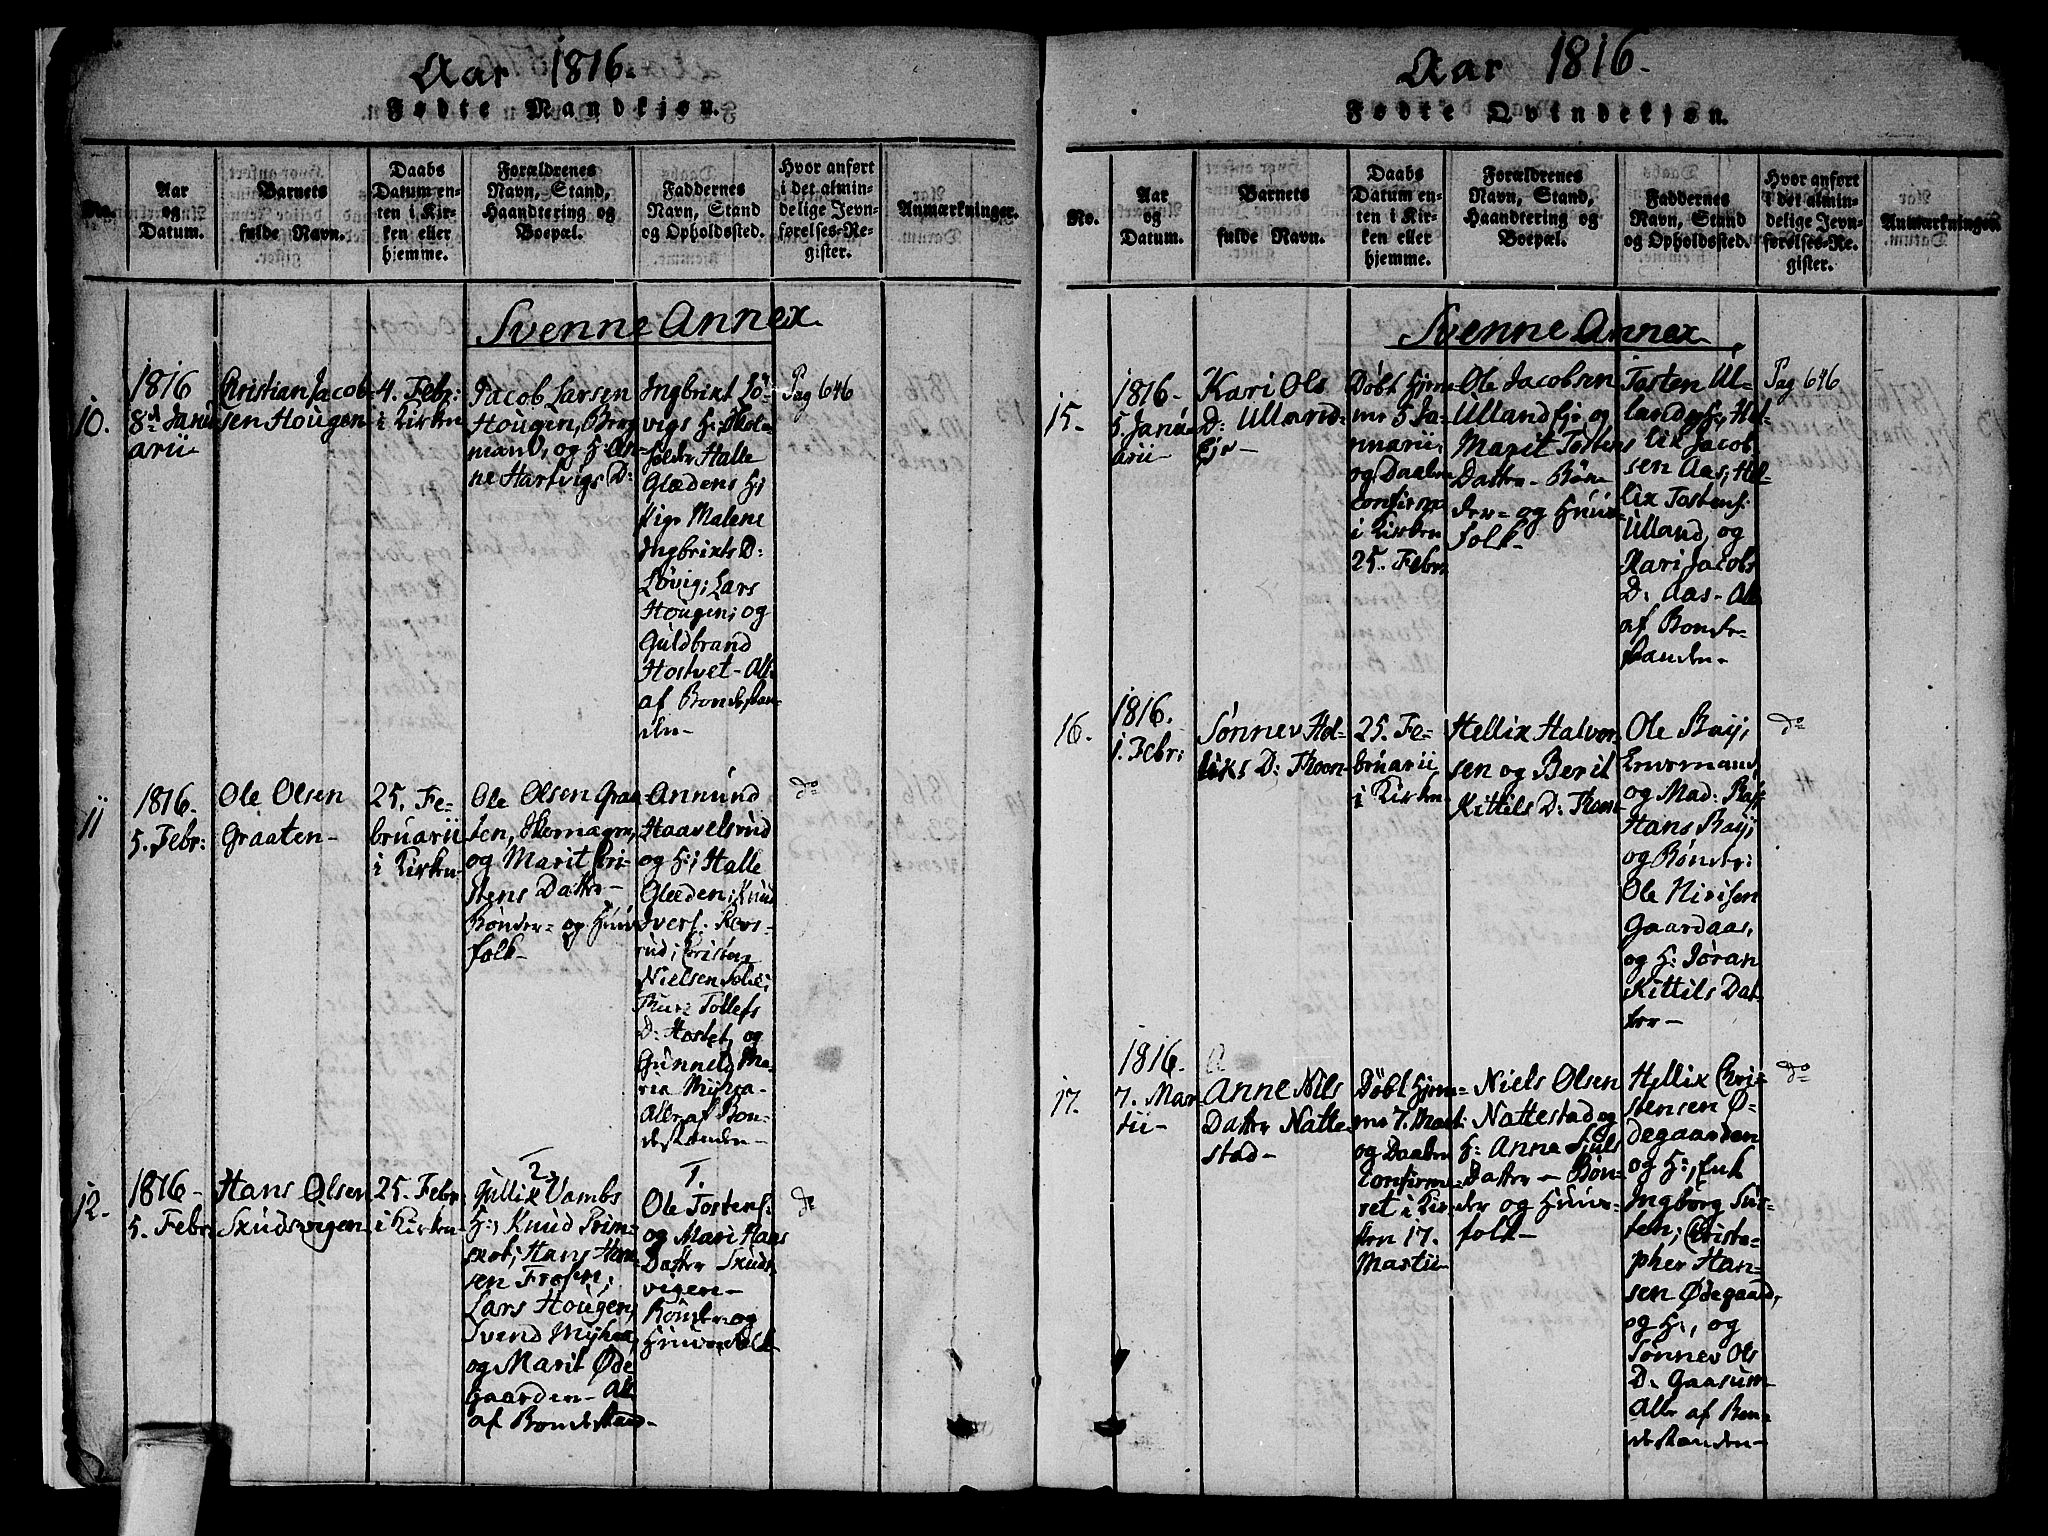 Aar 1816.
Fødte Mandkjøn.
No.
Aar
og
Datum.
Barnets
fulde Navn.
Daabs
Datum en-
ten i Kir-
ken eller
hjemme.
Forældrenes
Navn, Stand,
Haandtering og
Boepæl.
Faddernes
Navn, Stand
og Opholdssted.
Hvor anført
i det almin-
delige Jevn-
førelses-Re-
gister.
Anmærkninger.
Svenne Annex.
10.
1816
8de Janu
arii
Christian Jacob-
sen Hougen
4. Febr:
i Kirken
Jacob Larsen
Hougen, Berg
mand, og H: An-
ne Hartvigs D:
Ingbrixt Lö-
vigs H:
Halle
Glædens H;
Pige Malene
Ingbrixts D:
Lövig; Lars
Hougen; og
Guldbrand
Hostvet - Alle
af Bondestan-
den -
Pag 646
11
1816.
5. Febr:
Ole Olsen
Graaten -
25. Fe-
bruarii
i Kirken
Ole Olsen Graa-
ten,
og Marit Cri-
stens Datter -
Bönder- og Huus
folk -
Annund
Haavelsrud
og H; Halle
Glæden; Knud
Ivers:
rud; Cristen
Nielsen
Thuri Tollefs
D: Hostet, og
Gunneld Ma-
ria Myhra -
Alle af Bon-
destanden -
do
12.
1816 -
5. Febr
Hans Olsen
Skudsvigen
25. Febr:
i Kirken
2,
Gullix Vambs
H:, Knud Prim-
skot; Hans Han-
sen
Lars Hougen,
Svend Myhra,
og Marit Øde
Gaarden - Alle
af Bondestand -
1.
Ole Tostens:
og Mari Hans
Datter Skuds
vigen -
Bönder og
Huusfolk
do
Aar 1816.
Fødte Qvindekjøn.
No.
Aar
og
Datum.
Barnets
fulde Navn.
Daabs
Datum en-
ten i Kir-
ken eller
hjemme.
Forældrenes
Navn, Stand,
Haandtering og
Boepæl.
Faddernes
Navn, Stand
og Opholdssted.
Hvor anført
i det almin-
delige Jevn-
førelses-Re-
gister.
Anmærkninger.
Svenne Annex.
15.
1816.
5 Janu-
arii -
Kari Ols
D: Ulland-
Eje -
Döbt hjem-
me 5 Ja-
nuarii,
og Daaben
confirm
i Kirken
25. Febr:
Ole Jacobsen
Ullandeje og
Marit Tostens
Datter - Bön-
der- og Huus-
folk -
Tosten Ul-
land og H:, Hel-
lix Jacob
sen Aas; Hel-
lix Tostens:
Ulland, og
Kari Jacobs
D: Aas - Alle
af Bonde-
standen -
Pag 646
16.
1816.
1. Febr:
Sønnev Hel-
lixs D: Thoon
25. Fe-
bruarii
i Kirken
Hellix Halvor-
sen og Berit
Kittils D: Thoon
Ole
og Mad:
Hans
og Bönder:
Ole
Gaardaas,
og H: Jöran
Kittils Dat-
ter -
do
17.
1816.
7. Mar-
tii -
Anne Nils
Datter Natte-
stad -
Döbt hjem-
me 7. Mart:
og Daaben
confirme-
ret i Kir-
ken 17.
Martii
Niels Olsen
Nattestad og
H: Anne Juls
Datter - Bön-
der og Huus-
folk -
Hellix Chri-
stensen Ø-
degaarden
og H:, Enk
Ingborg
Christo-
pher Han-
sen Ødegaard,
og H:, og
Sönnev Ols
D: Gaasum
Alle af Bon-
destanden -
do